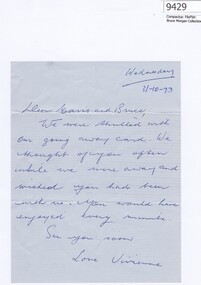 9429
Wednesday
31-10-73
Dear and Bruce,
We were thrilled with
our going away card. We
thought of you often
while we were away and
wished you had been
with us. You would have
enjoyed every minute
See you soon
Love Vivienne